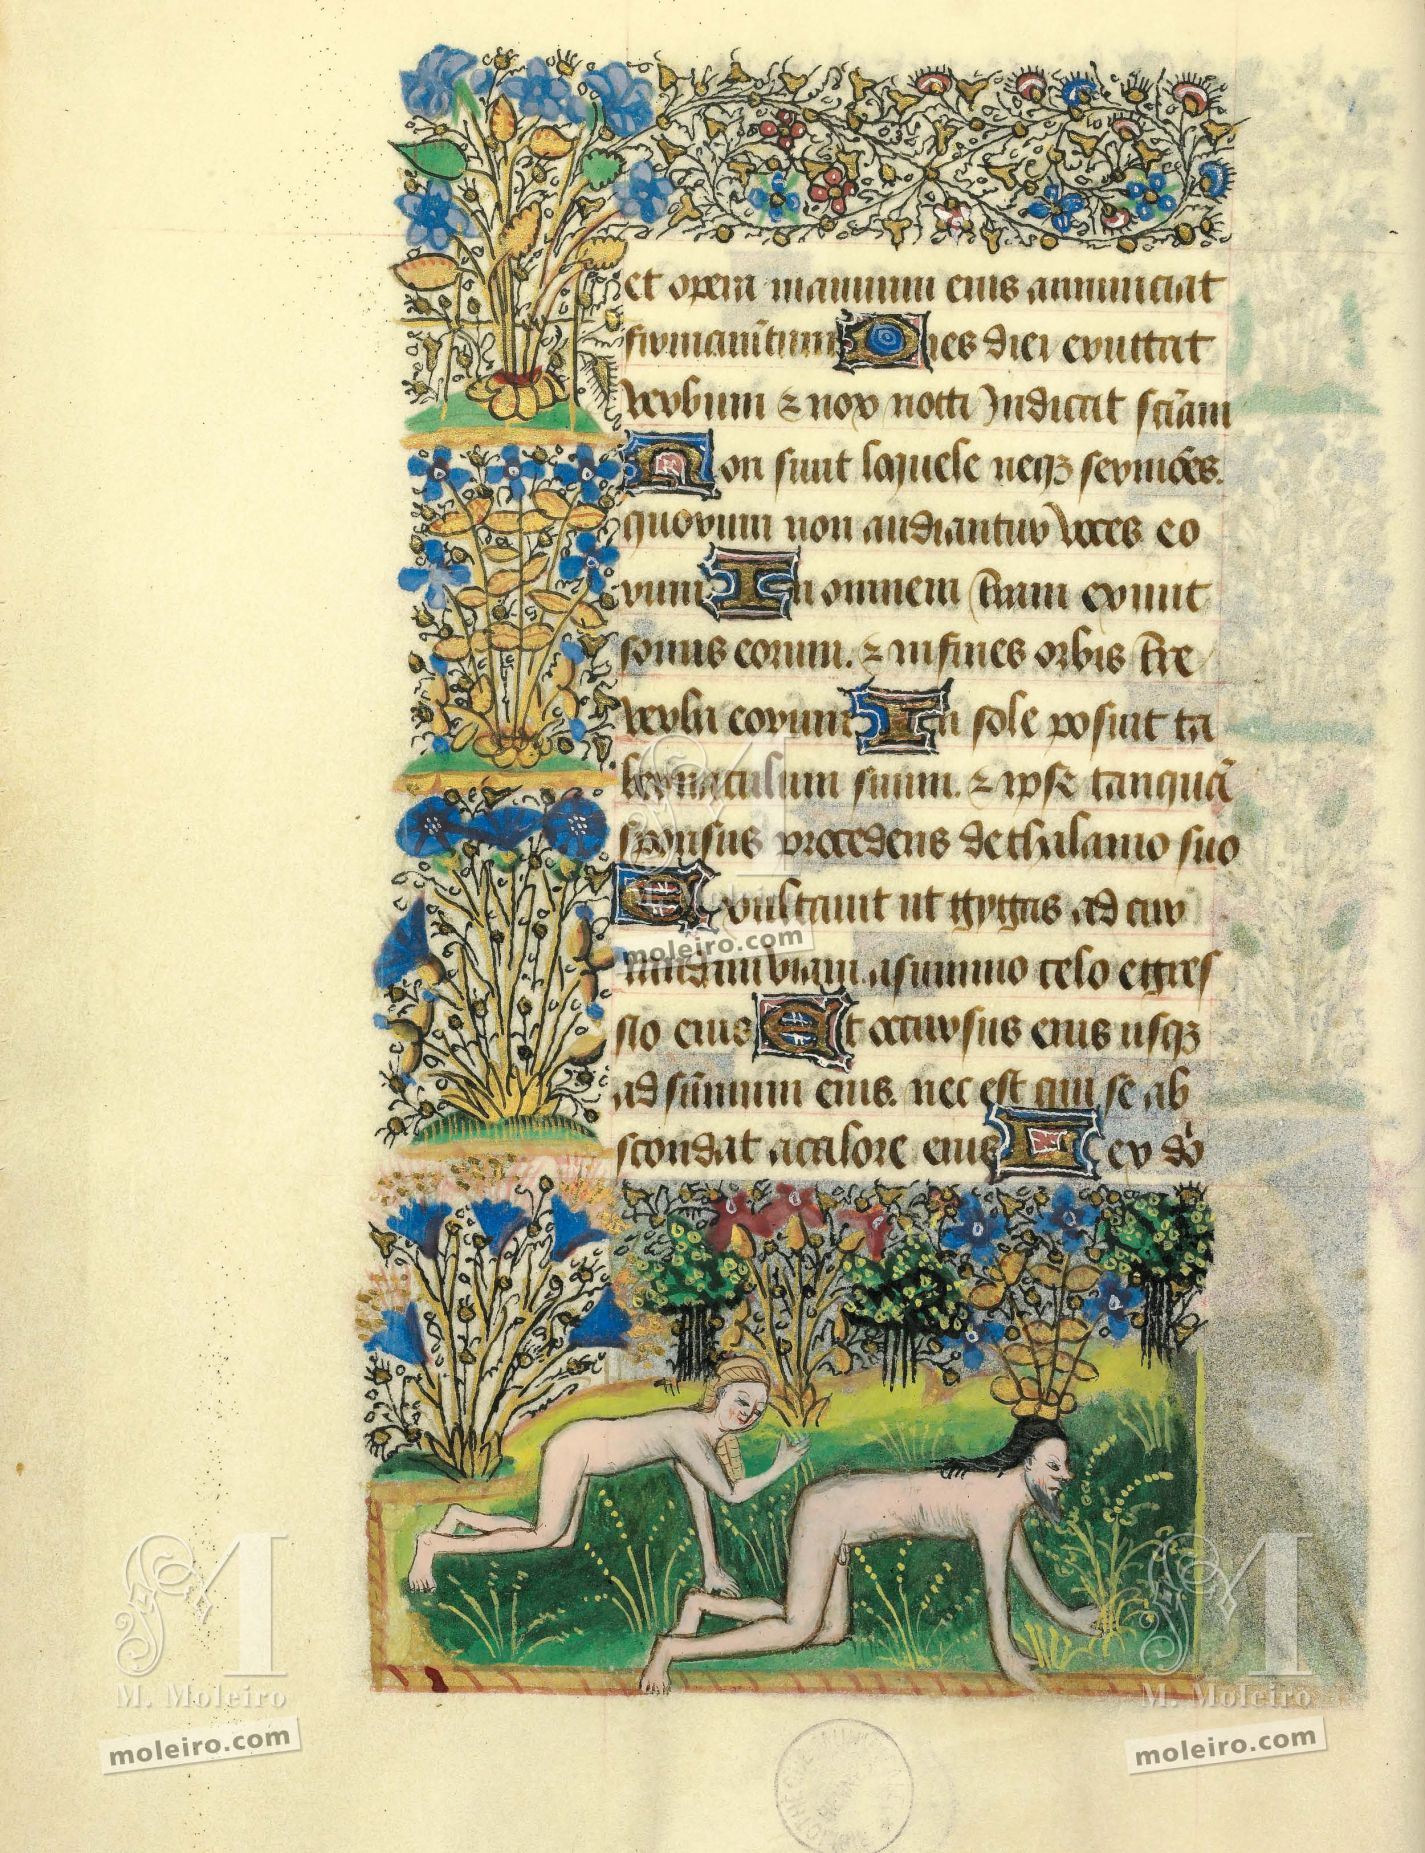 et opera manuum eius annunciat
firmam̄tum Dies diei eructat
verbum & nox nocti Indicat sciā̄m
Non sunt loquele neqꝫ sermōes.
quorum non audiantur voces eo
rum In omnem t̄ram exiuit
sonus eorum. & in fines orbis t̄re
verba eorum In sole posuit ta
bernaculum suum. & ipse tanquā
sponsus procedens de thalamo suo
Exultauit ut gygas ad cur
rendam viam. a summo celo egres
sio eius Et occursus eius usqꝫ
ad sūmum eius. nec est qui se ab
scondat a calore eius Lex dō
M. Moleiro
moleiro.com
M. Moleiro
moleiro.com
M. Moleiro
moleiro.com